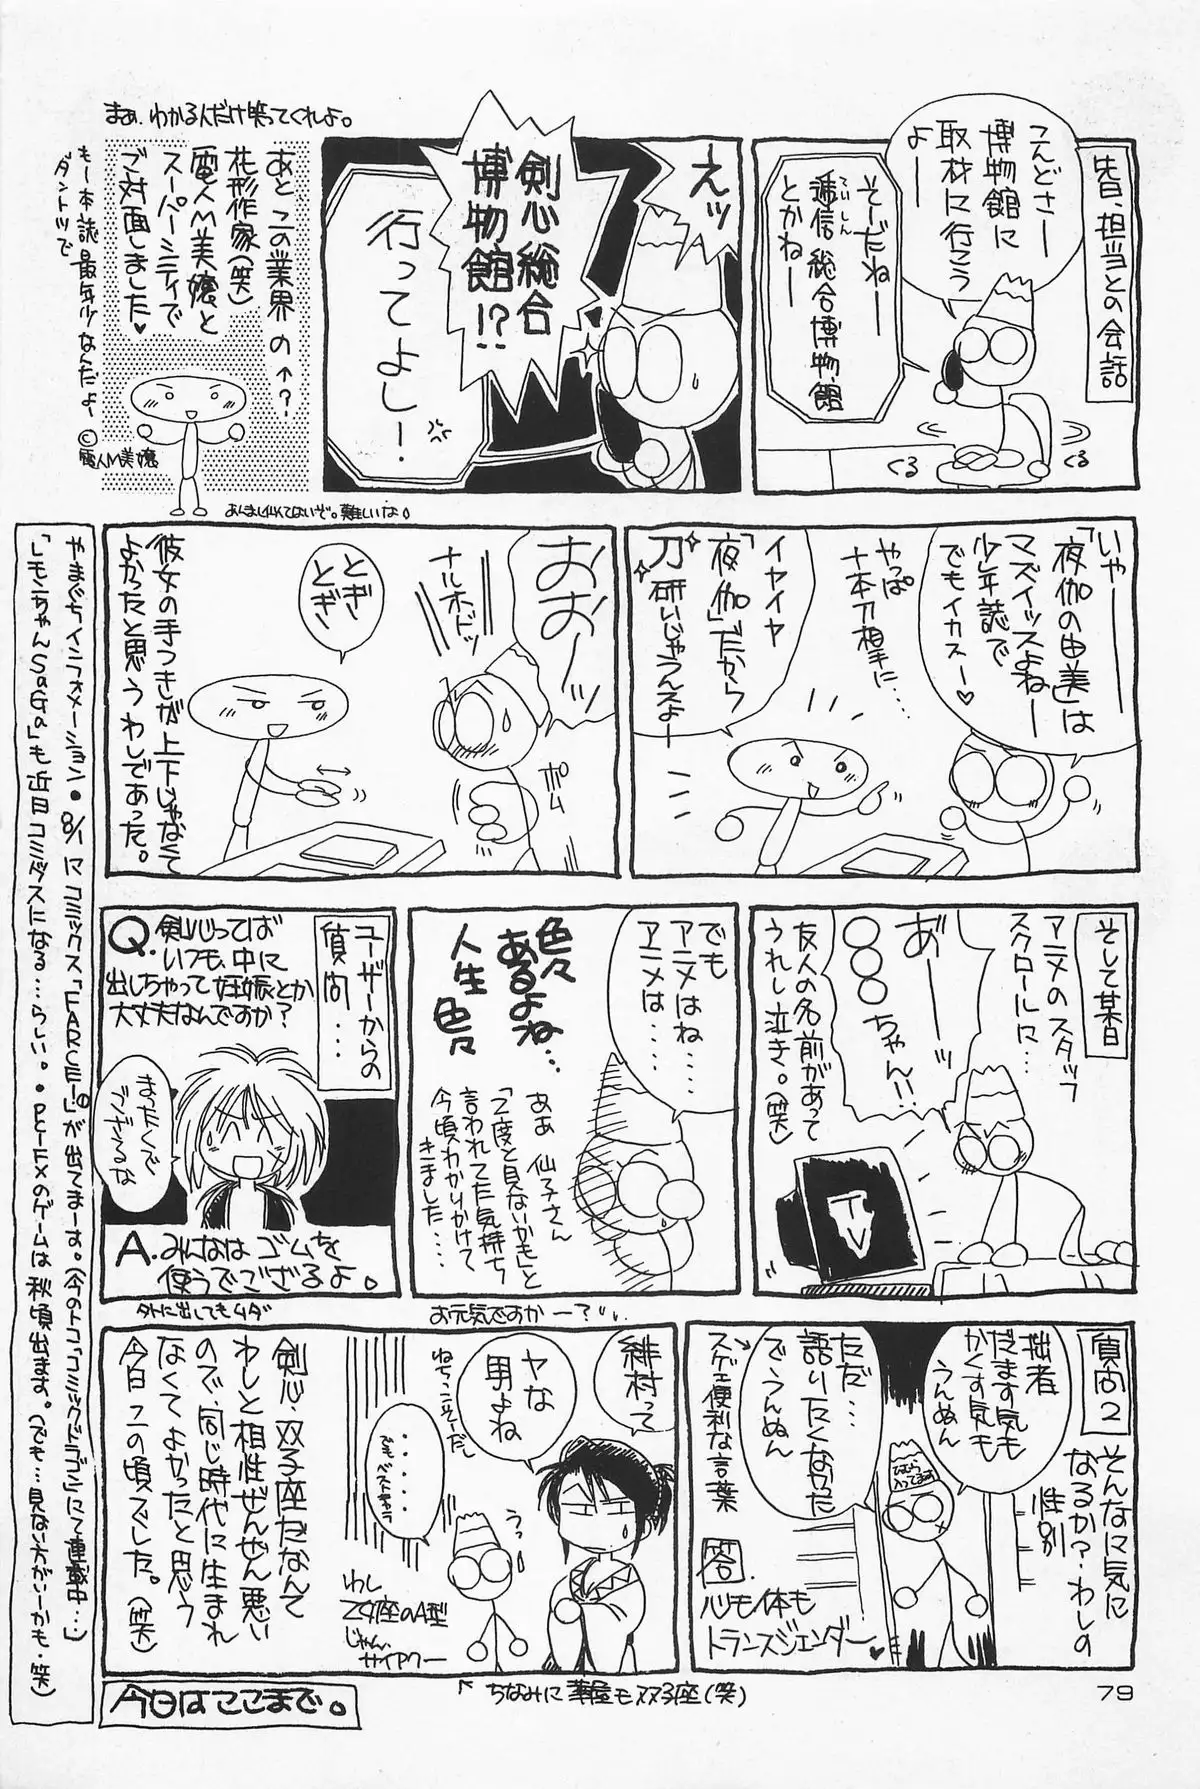 皆日、担当との会話
こんどさー
博物館に
取材に行こう
よー
そーだねー
逓信総合博物館
ていしん
とかねー
くる
くる
えッ
剣心総合
博物館!?
行ってよし!
まぁ、わかる人だけ笑ってくれよ。
あと この業界の↑?
花形作家(笑)
電人M美嬢と
スーパーシティで
ご対面しました♥
もー本誌最気少なんだよー
ダントツで
©電人M美嬢
あんまし似てないぞ。難しいな。
いやー
「夜伽の由美」は
マズイッスよねー
少年誌で
でもイカスー♥
やっぱ
十本刀相手に…
イヤイヤ
「夜伽」だから
刀研いじゃうんスよー
おおーッ
ナルホドッ
ポム
とぎ
とぎ
彼女の手つきが上下じゃなくて
よかったと思うわしであった。
そして某日
アニメのスタッフ
スクロールに…
あ゛ー
〇〇〇ちゃん!!
友人の名前があって
うれし泣き。(笑)
TV
でも
アニメはね…
アニメは……
色々
あるよね…
人生色々
ああ 仙子さん
「2度と見ないかも」と
言われてた気持ち
今頃わかりかけて
きました……
お元気ですかー?
ユーザーからの
質問…
Q.剣心ってば
いつも、中に
出しちゃって妊娠とか
大丈夫なんですか?
まったくで
ござるな
A.みんなは ゴムを
使うでござるよ。
外に出してもムダ
質問2
そんなに気に
なるか?わしの
性別
拙者
だます気も
かくす気も
うんぬん
ただ…
語りたくなかった
でうんぬん
スゲェ便利な言葉
ひむら
入ってます
答.
心も体も
トランスジェンダー♥
緋村って
ヤな
男よね
ねちっこそーだし
……
でもベストキャラ
うっ
わし
乙女座のA型
じゃん
サイアクー
剣心、双子座だなんて
わしと相性ぜんぜん悪い
ので、同じ時代に生まれ
なくてよかったと思う
今日この頃でした。(笑)
↑ちなみに薫殿も双子座(笑)
今日はここまで。
やまぐちインフォメーション●8/1にコミックス「FARCE!①」が出てまーす。(今のトコ「コミックドラゴン」にて連載中…)
「レモンちゃんSaGa」も近日コミックスになる……らしい。●PC-FXのゲームは秋頃出ます。(でも…見ない方がいーかも・笑)
79